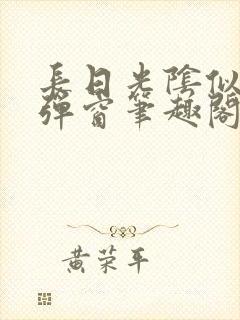 長日光陰似
彈窗筆趣閣
黄荣平